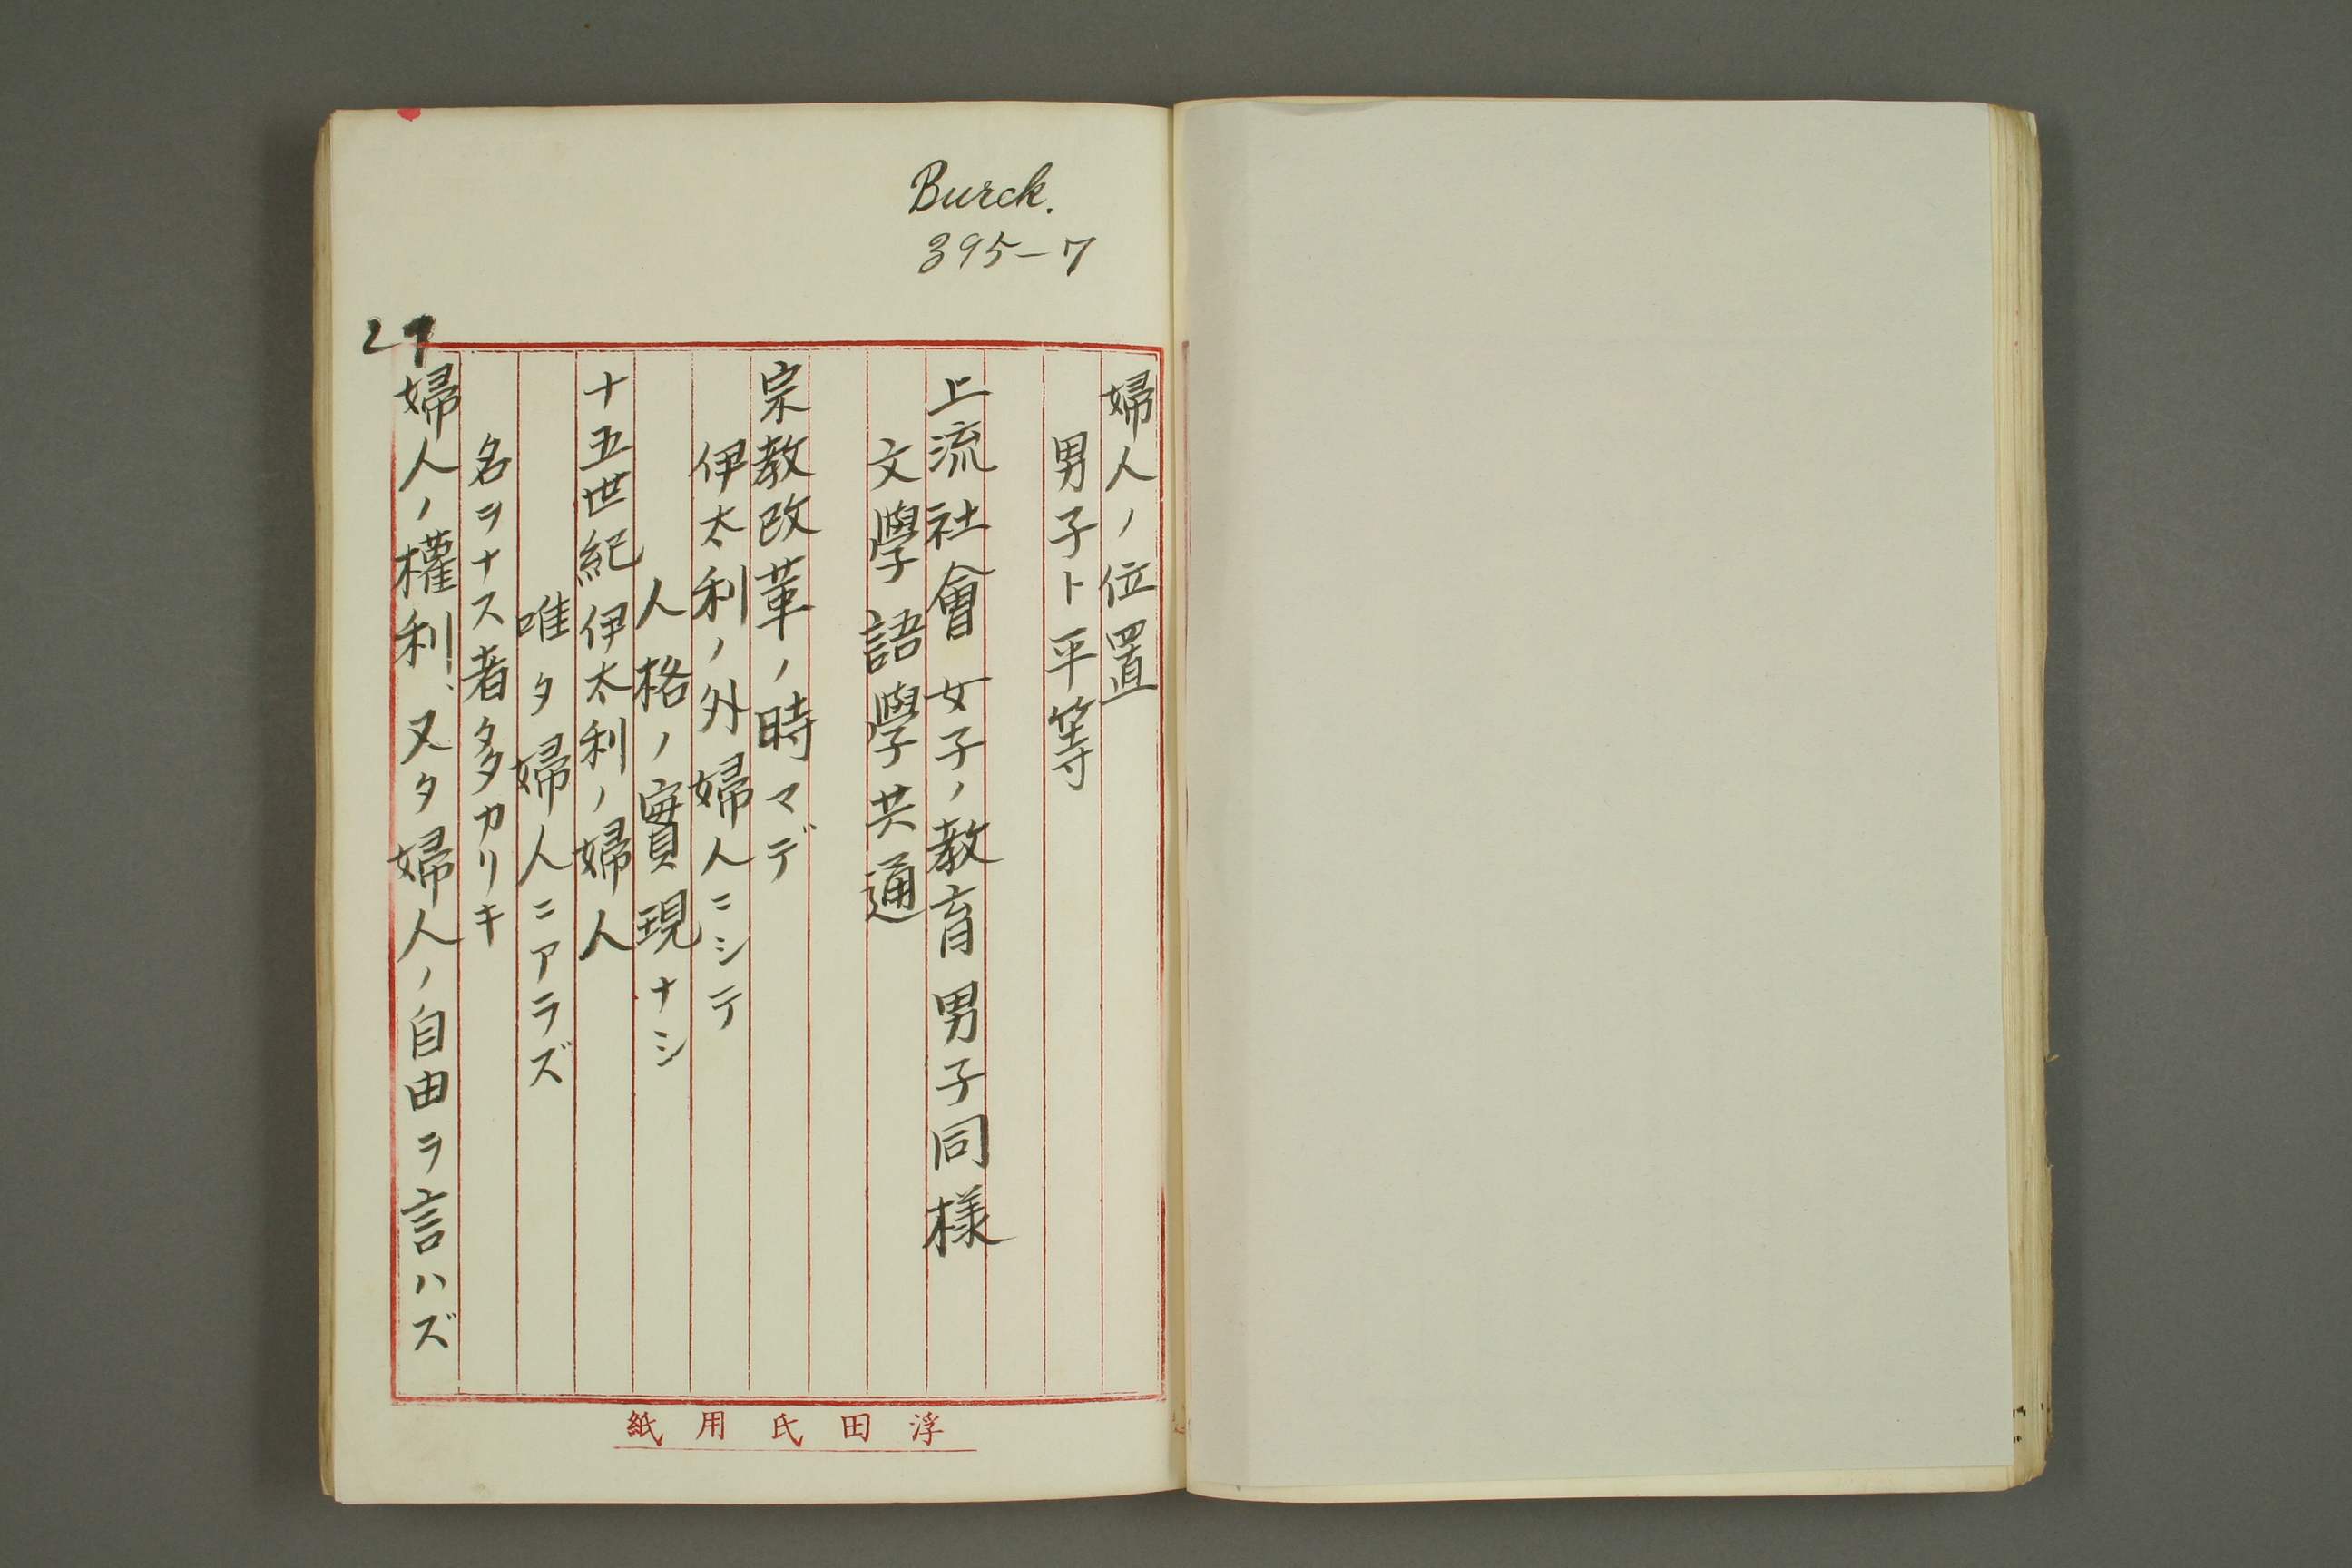 Burck.
395-7
27
婦人ノ位置
男子ト平等
上流社會女子ノ教育男子同樣
文學語學共通
宗教改革ノ時マデ
伊太利ノ外婦人ニシテ
人格ノ實現ナシ
十五世紀伊太利ノ婦人
唯タ婦人ニアラズ
名ヲナス者多カリキ
婦人ノ權利、又タ婦人ノ自由ヲ言ハズ
浮田氏用紙